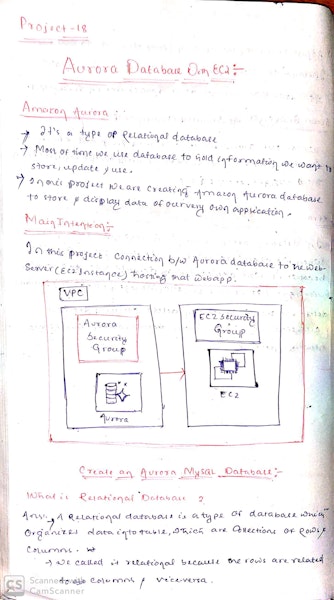 Project-18
Aurora Database On EC2:-
Amazon Aurora:
→ It's a type of Relational database
→ Most of time we use database to hold information we want to
store, update & use.
→ In this project we are creating Amazon Aurora database
to store & display data of our very own application.
Main Intention:-
In this project Connection b/w Aurora database to the Web-
Server (EC2 Instance) hosting that webapp.
VPC
Aurora
Security
Group
Aurora
EC2 Security
Group
EC2
Create an Aurora MySQL Database:-
What is Relational Database ?
Ans:- A Relational database is a type of database which
Organizes data into table, which are Collections of Rows &
Columns.
→ We called it relational because the rows are related
to columns & viceversa.
CS Scanned
CamScanner